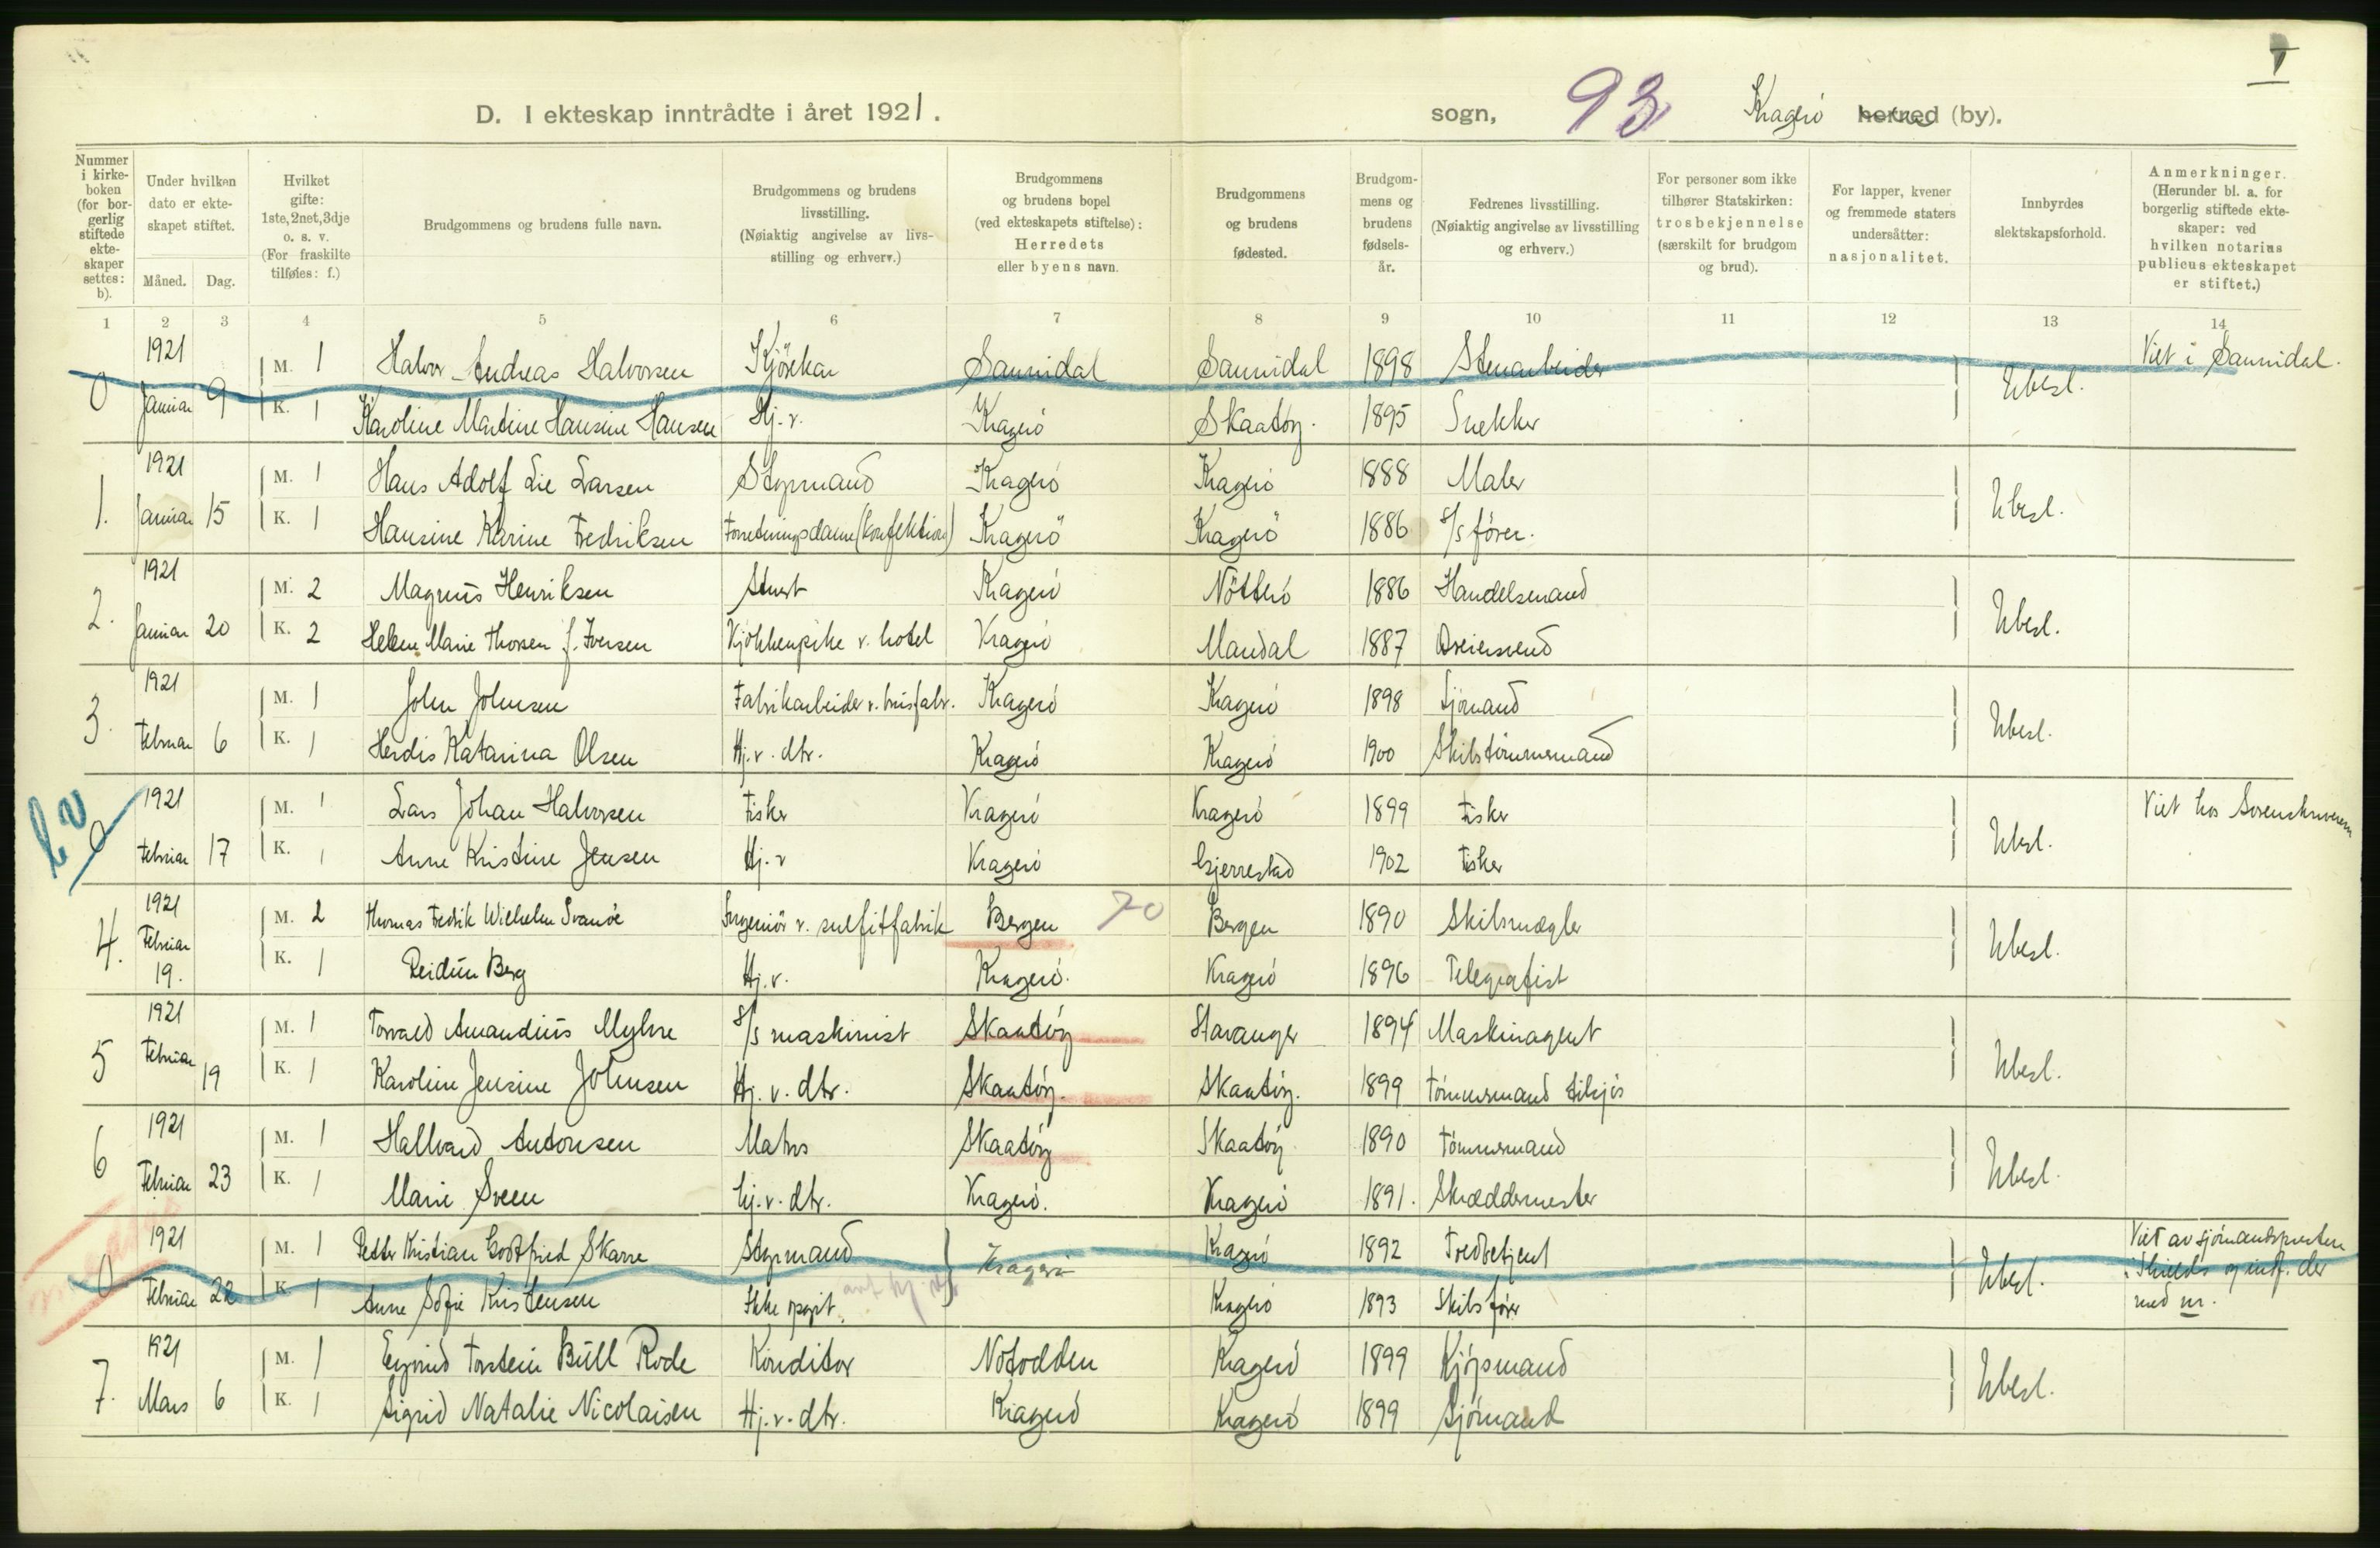 D. I ekteskap inntrådte i året 1921.
sogn, 93 Kragerö herred (by).
Nummer i kirkeboken (for borgerlig stiftede ekteskaper settes: b).
Under hvilken dato er ekteskapet stiftet.
Måned. Dag.
Hvilket gifte: 1ste, 2net, 3dje o. s. v. (For fraskilte tilføies: f.)
Brudgommens og brudens fulle navn.
Brudgommens og brudens livsstilling. (Nøiaktig angivelse av livsstilling og erhverv.)
Brudgommens og brudens bopel (ved ekteskapets stiftelse): Herredets eller byens navn.
Brudgommens og brudens fødested.
Brudgommens og brudens fødselsår.
Fedrenes livsstilling. (Nøiaktig angivelse av livsstilling og erhverv.)
For personer som ikke tilhører Statskirken: trosbekjennelse (særskilt for brudgom og brud).
For lapper, kvener og fremmede staters undersåtter: nasjonalitet.
Innbyrdes slektskapsforhold.
Anmerkninger. (Herunder bl. a. for borgerlig stiftede ekteskaper: ved hvilken notarius publicus ekteskapet er stiftet.)
1 2 3 4 5 6 7 8 9 10 11 12 13 14
0 1921 Januar 9 M. 1 Halvor Andreas Halvorsen Kjörekar Sannidal Sannidal 1898 Stenarbeider Ubesl. Viet i Sannidal.
K. 1 Karoline Martine Hansine Hansen Hj. v. Kragerö Skaatöy. 1895 Snekker
1. 1921 Januar 15 M. 1 Hans Adolf Lie Larsen Styrmand Kragerö Kragerö 1888 Maler Ubesl.
K. 1 Hansine Karine Fredriksen Forretningsdame (konfektion) Kragerö Kragerö 1886 S/S förer.
2. 1921 Januar 20 M. 2 Magnus Henriksen Stuert Kragerö Nötterö 1886 Handelsmand Ubesl.
K. 2 Helene Marie Thorsen f. Iversen Kjökkenpike v. hotel Kragerö Mandal 1887 Dreiersvend
3. 1921 Februar 6 M. 1 John Johnsen Fabrikarbeider v. Kragerö Kragerö 1898 Sjömand Ubesl.
K. 1 Herdis Katarina Olsen Hj. v. dtr. Kragerö Kragerö 1900 Skibstömmermand
0 1921 Februar 17 M. 1 Lars Johan Halvorsen Fisker Kragerö Kragerö 1899 Fisker Ubesl. Viet hos Sorenskriveren
K. 1 Anne Kristine Jensen Hj. v Kragerö Gjerrestad 1902 Fisker
4. 1921 Februar 19. M. 2 Thomas Fredrik Wilhelm Svanöe Ingeniör v. sulfitfabrik Bergen 70 Bergen 1890 Skibsmægler Ubesl.
K. 1 Reidun Berg Hj. v. Kragerö. Kragerö 1896 Telegrafist
5 1921 Februar 19 M. 1 Torvald Amandius Myhre S/S maskinist Skaatöy Stavanger 1894 Maskinagent Ubesl.
K. 1 Karoline Jensine Johnsen Hj. v. dtr. Skaatöy. Skaatöy. 1899 Tömmermand tilsjös
6 1921 Februar 23 M. 1 Hallvard Antonsen Matros Skaatöy Skaatöy 1890 Tömmermand Ubesl.
K. 1 Marie Sveen hj. v. dtr. Kragerö. Kragerö 1891. Skræddermester
0 1921 Februar 22 M. 1 Petter Kristian Godtfried Skarre Styrmand Kragerö Kragerö 1892 Tredbetjent Ubesl. Viet av sjömandspresten i Shields og indf. der med nr.
K. 1 Anne Sofie Kristensen Ikke opgit. Kragerö 1893 Skibsförer
7. 1921 Mars 6 M. 1 Eyvind Torstein Bull Rode Konditor Notodden Kragerö 1899 Kjöpmand Ubesl.
K. 1 Sigrid Natalie Nicolaisen Hj. v. dtr. Kragerö Kragerö 1899 Sjömand